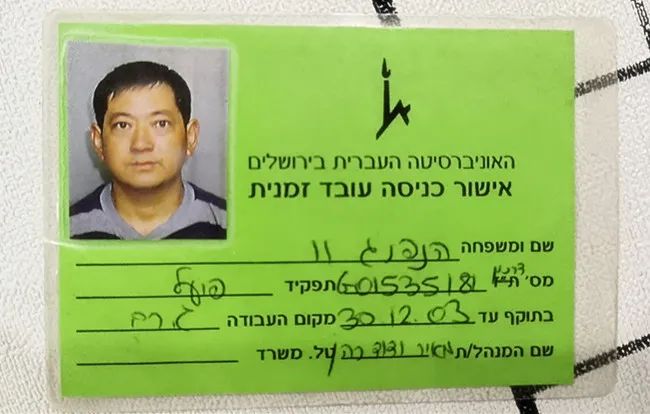 האוניברסיטה העברית בירושלים
אישור כניסה עובד זמנית
שם ומשפחה הנפנג וו
מס' דרכון G01535181 תפקיד פועל
בתוקף עד 30.12.03 מקום העבודה ג. רם
שם המנהל/ת מאיר ודוד טל. משרד